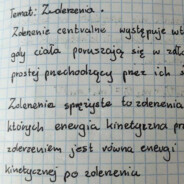 Temat: Zderzenia.
Zderzenie centralne występuje wt
gdy ciała poruszają się w zdłu
prostej przechodzący przez ich ś
Zderzenia sprężyste to zderzenia
których energia kinetyczna prz
zderzeniem jest równa energi
kinetycznej po zderzenia